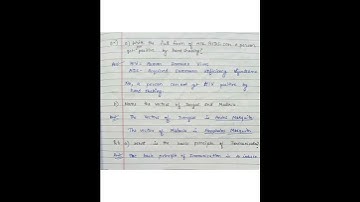 a) Write the full form of HIV, AIDS. Can a person
get positive by hand shaking?
Ans HIV - Human Immuno Virus
AIDS - Acquired Immuno deficiency Syndrome
No, a person can not get HIV positive by
hand shaking.
b) Name the Vectors of Dengue and Malaria
Ans The Vectors of Dengue is Aedes Mosquito
The Vectors of Malaria is Anopheles Mosquito
a) What is the basic principle of Immunisation?
Ans The basic principle of Immunisation is